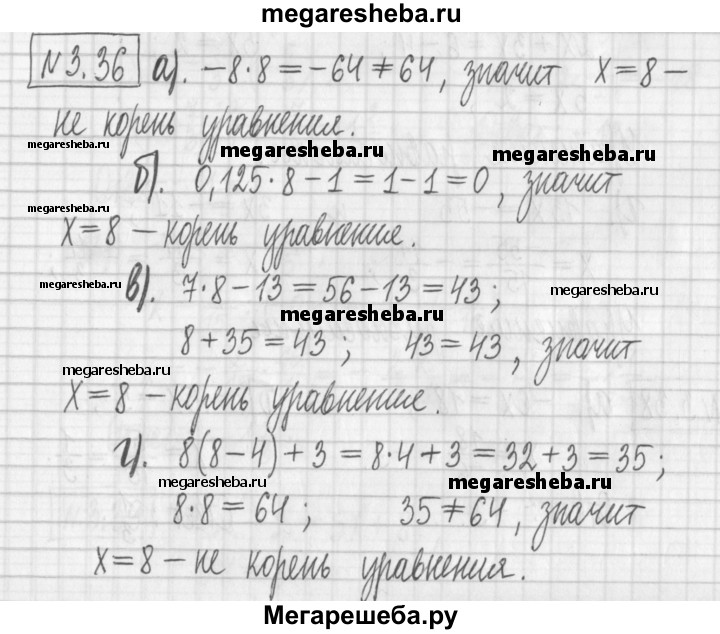 megaresheba.ru
№3.36 а). −8·8=−64≠64, значит x=8 −
не корень уравнения.
megaresheba.ru
megaresheba.ru
megaresheba.ru
б). 0,125·8−1=1−1=0, значит
megaresheba.ru
x=8 − корень уравнение.
megaresheba.ru
в). 7·8−13=56−13=43;
megaresheba.ru
megaresheba.ru
8+35=43; 43=43, значит
megaresheba.ru
x=8 − корень уравнение.
г). 8(8−4)+3=8·4+3=32+3=35;
megaresheba.ru
megaresheba.ru
8·8=64; 35≠64, значит
x=8 − не корень уравнения.
Мегарешеба.ру